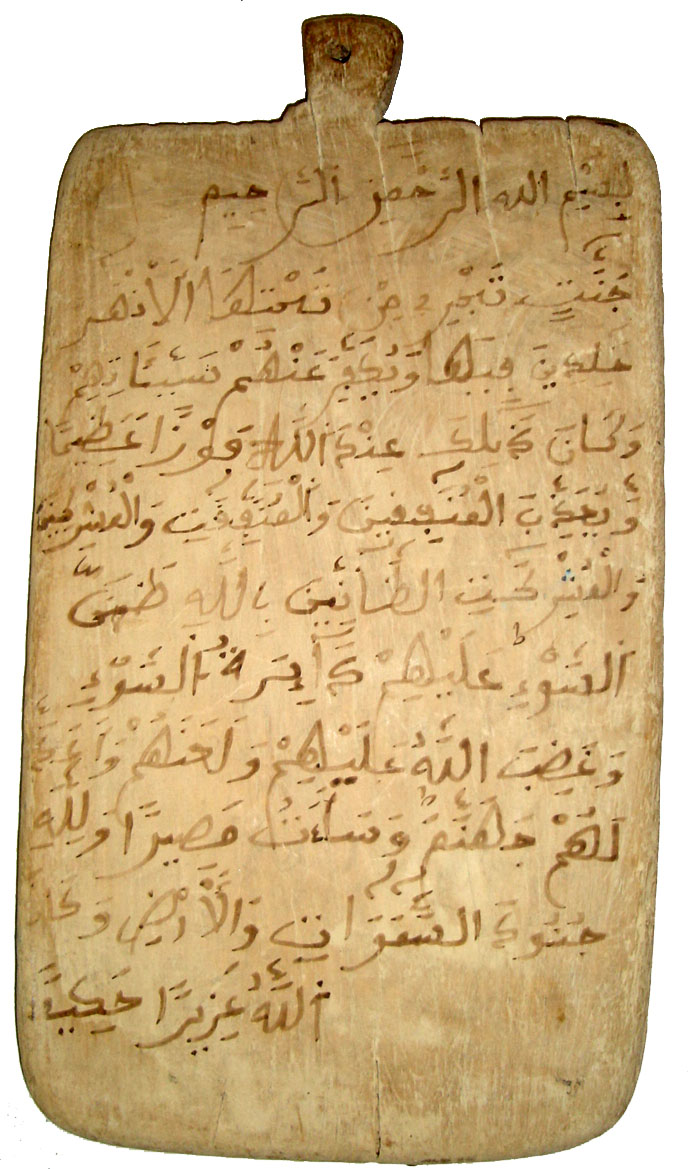 بِسْمِ الله الرَّحْمٰنِ الرَّحِيمِ
جَنَّٰتٍ تَجْرِے مِن تَحْتِهَا اَلَانْهَٰرُ
خَٰلِدِينَ فِيهَا وَيُكَفِّرَ عَنْهُمْ سَيِّـَٔاتِهِمْ
وَكَانَ ذَٰلِكَ عِندَ اَللَّهِ فَوْزًا عَظِيمًا
وَيُعَذِّبَ الْمُنَٰفِقِينَ وَالْمُنَٰفِقَٰتِ وَالْمُشْرِكِينَ
وَالْمُشْرِكَٰتِ الظَّآنِّينَ بِاللَّهِ ظَنَّ
اَلسَّوْءِ عَلَيْهِمْ دَآئِرَةُ اُلسَّوْءِ
وَغَضِبَ اَللَّهُ عَلَيْهِمْ وَلَعَنَهُمْ وَأَعَدَّ
لَهُمْ جَهَنَّمَ وَسَآءَتْ مَصِيرًا وَلِلهِ
جُنُودُ السَّمَٰوَٰتِ وَالَارْضِ وَكَانَ
اَللَّهُ عَزِيزًا حَكِيمًا